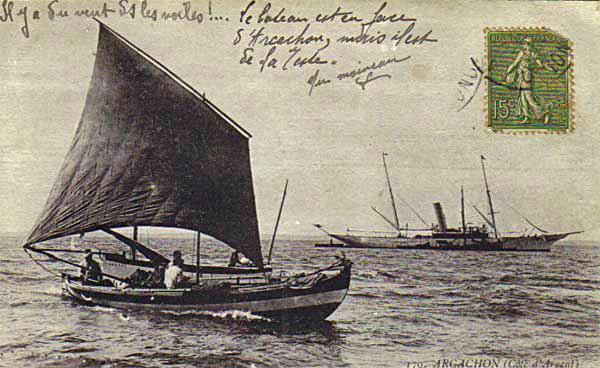 Il y a du vent ds les voiles!...
le bateau est en face
d'Arcachon, mais il est
de la Teste.
RÉPUBLIQUE FRANÇAISE
15c
179. ARCACHON (Côte d'Argent)